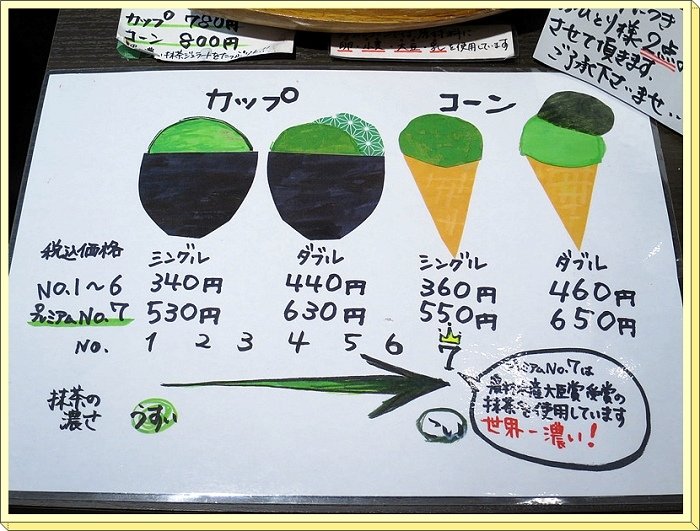 カップ 780円
コーン 800円
を使用しています
2点
させて頂きます。
ご了承下さいませ..
カップ コーン
税込価格 シングル ダブル シングル ダブル
NO.1～6 340円 440円 360円 460円
プレミアムNo.7 530円 630円 550円 650円
No. 1 2 3 4 5 6 7
抹茶の
濃さ
うすい
こい
プレミアムNo.7は
農林水産大臣賞受賞の
抹茶を使用しています
世界一濃い!